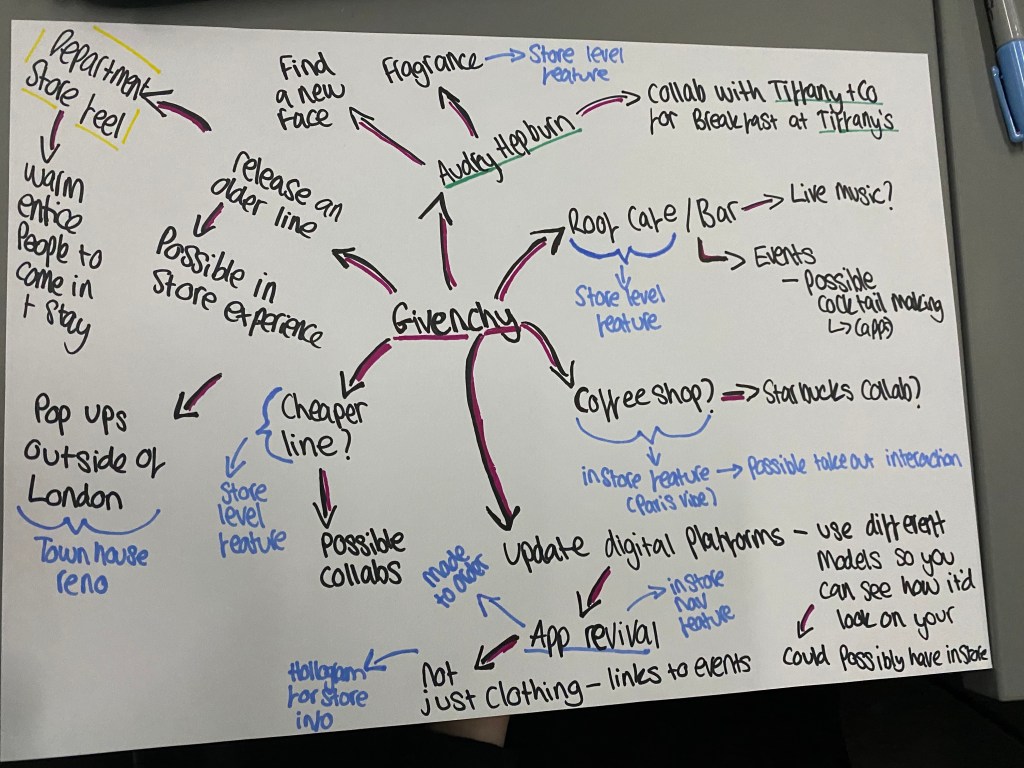 Department
Store feel
warm
entice
People to
come in
+ Stay
Find
a new
face
Fragrance
Store level
feature
Audrey Hepburn
collab with Tiffany + Co
for Breakfast at Tiffany's
release an
older line
Possible in
Store experience
Roof Cafe / Bar
Store level
feature
Live music?
Events
- Possible
cocktail making
(apps)
Givenchy
Coffee shop?
Starbucks Collab?
instore feature
(Paris vibe)
Possible take out interaction
Cheaper
line?
Store
level
feature
Possible
collabs
Pop ups
outside of
London
Town house
reno
update digital Platforms - use different
Models so you
can see how it'd
look on your
Could Possibly have instore
App revival
made
to order
instore
nav
feature
not
just clothing - links to events
Hollogam
for store
info